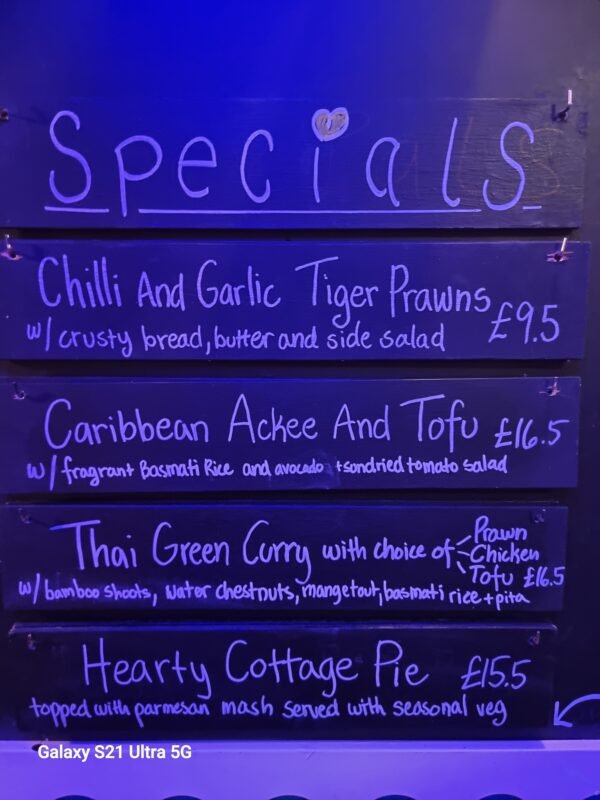 Specials
Chilli And Garlic Tiger Prawns
£9.5
w/ crusty bread, butter and side salad
Caribbean Ackee And Tofu £16.5
w/ fragrant Basmati Rice and avocado + sondried tomato salad
Thai Green Curry with choice of
Prawn
Chicken
Tofu £16.5
w/ bamboo shoots, water chestnuts, mangetout, basmati rice + pita
Hearty Cottage Pie £15.5
topped with parmesan mash served with seasonal veg
Galaxy S21 Ultra 5G